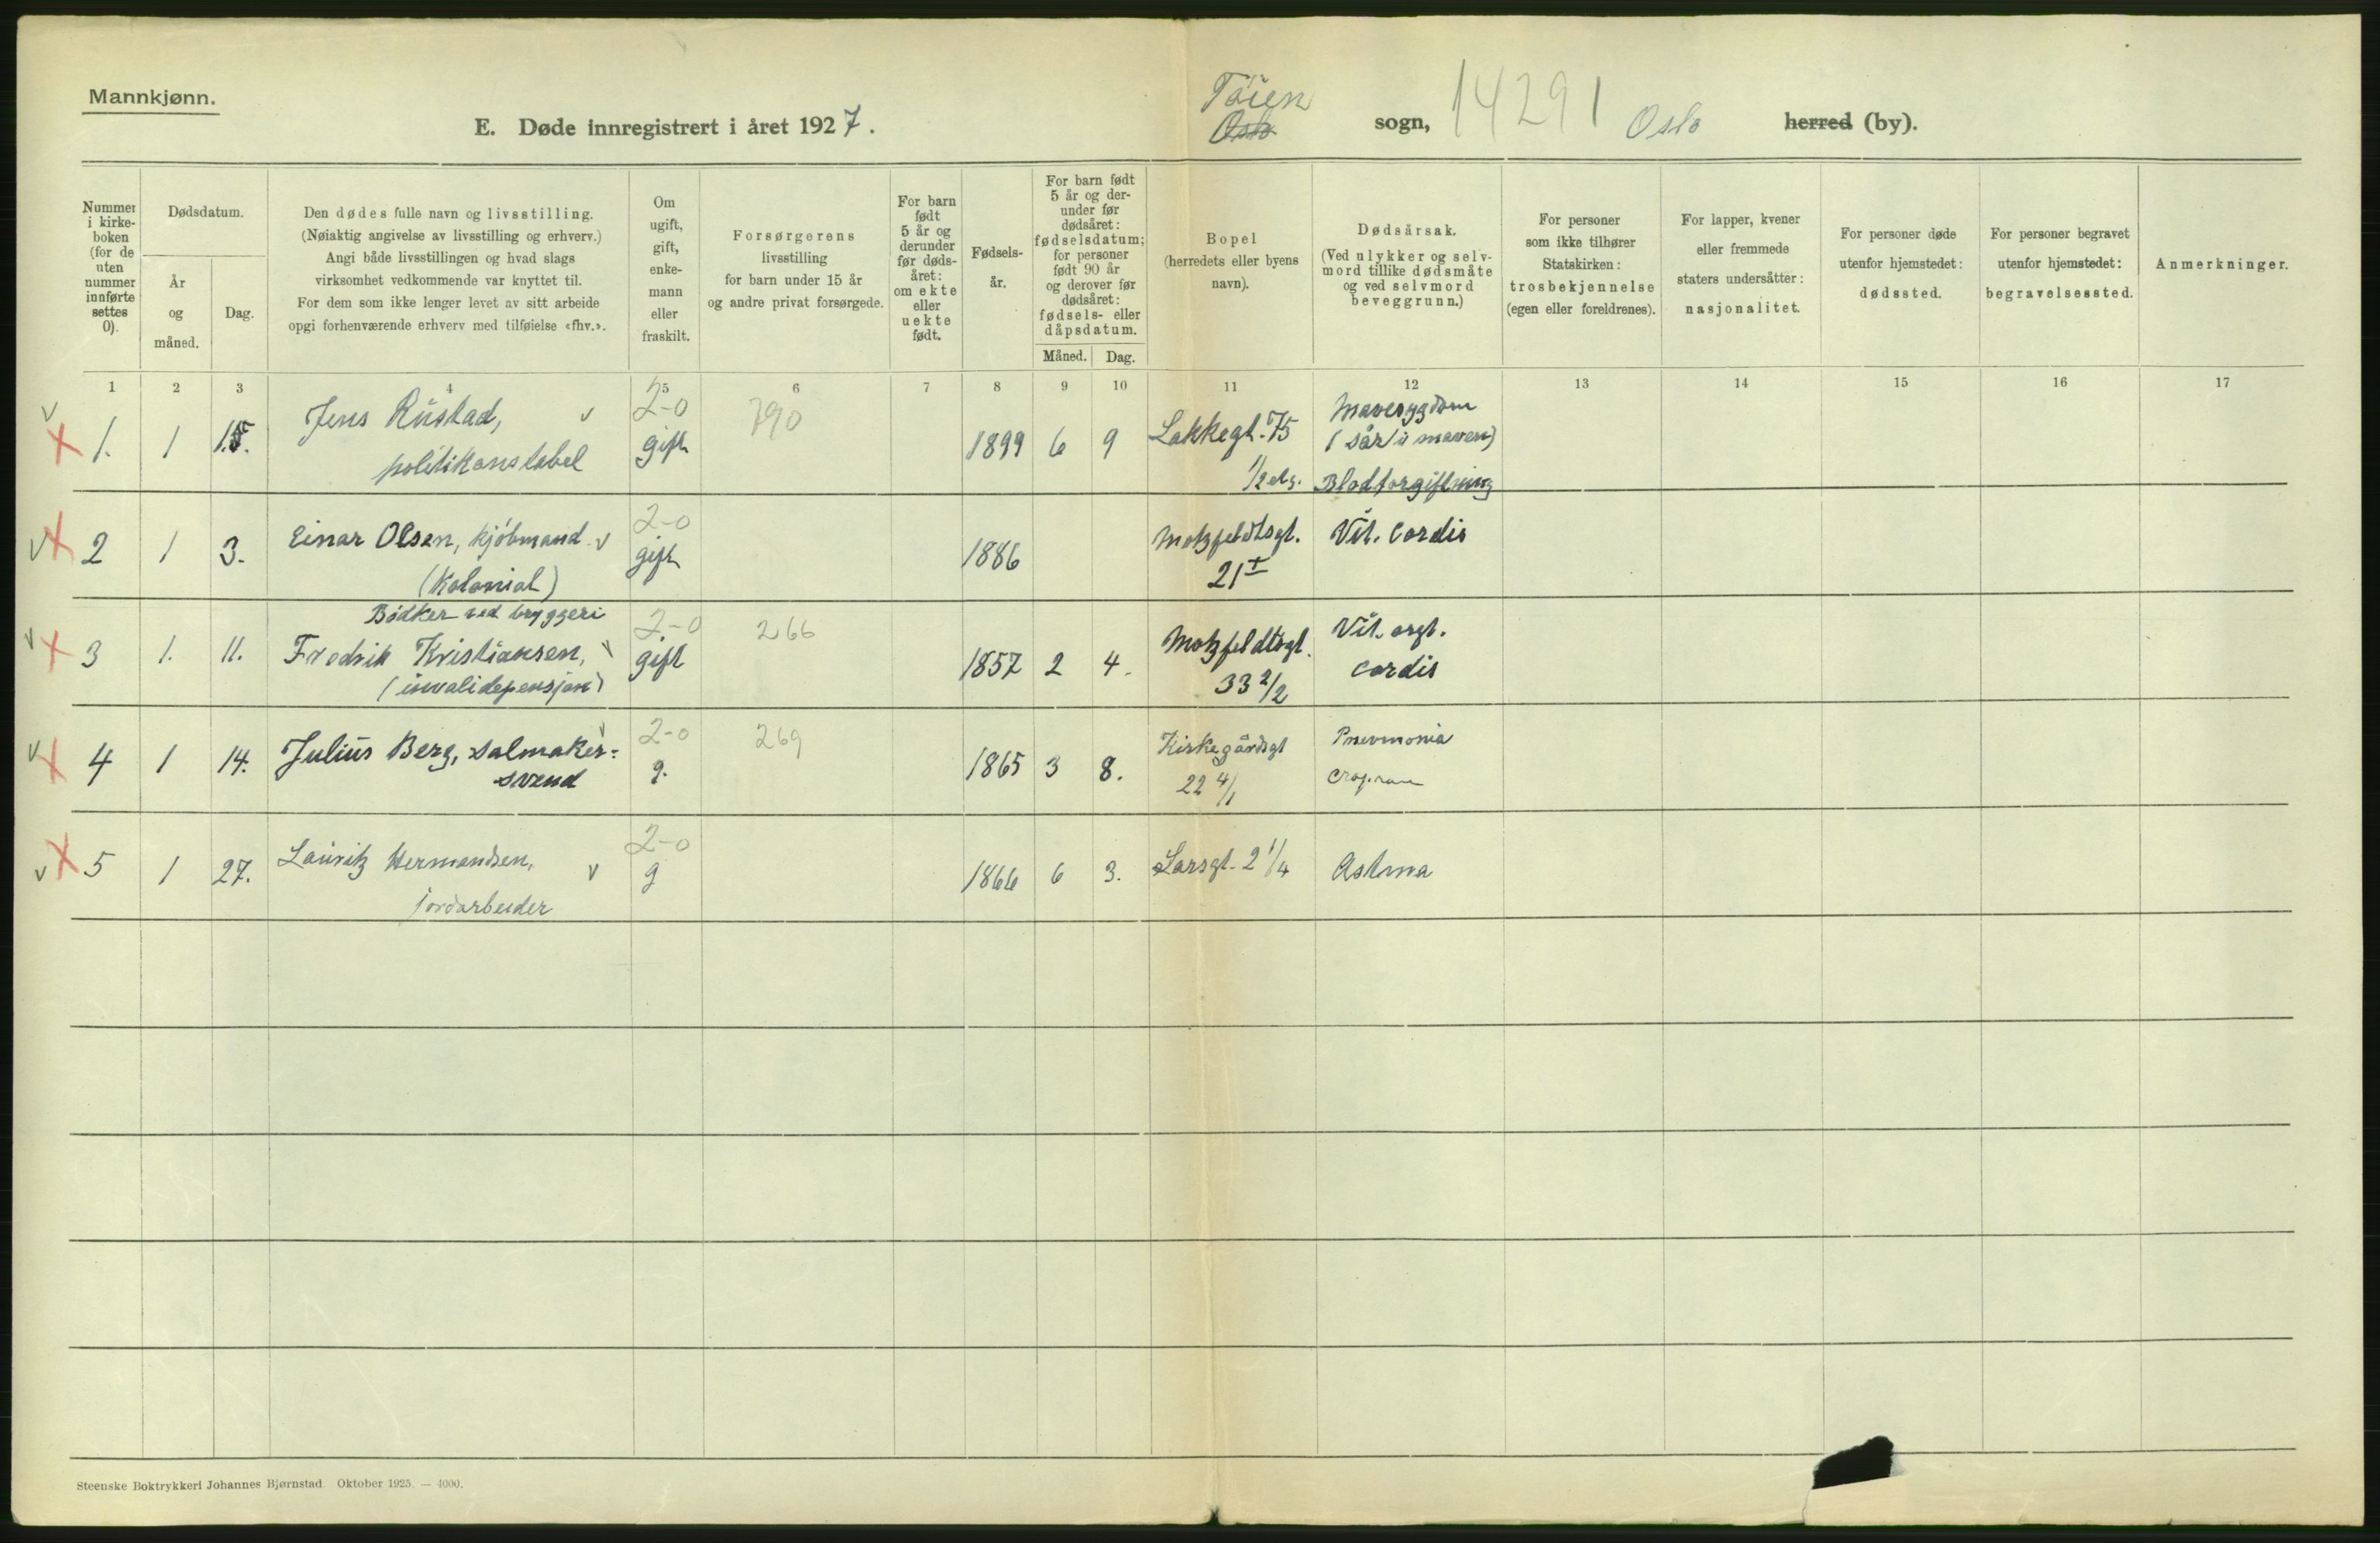 Mannkjønn.
E. Døde innregistrert i året 1927.
Tøien
Oslo
sogn, 14291 Oslo herred (by).
Nummer i kirke-boken (for de uten nummer innførte settes 0).
Dødsdatum.
År og måned.
Dag.
Den dødes fulle navn og livsstilling.
(Nøiaktig angivelse av livsstilling og erhverv.)
Angi både livsstillingen og hvad slags
virksomhet vedkommende var knyttet til.
For dem som ikke lenger levet av sitt arbeide
opgi forhenværende erhverv med tilføielse «fhv.».
Om ugift, gift, enke-mann eller fraskilt.
Forsørgerens
livsstilling
for barn under 15 år
og andre privat forsørgede.
For barn født 5 år og derunder før døds-året: om ekte eller uekte født.
Fødsels-år.
For barn født 5 år og der-under før dødsåret: fødselsdatum; for personer født 90 år og derover før dødsåret: fødsels- eller dåpsdatum.
Måned. Dag.
Bopel
(herredets eller byens
navn).
Dødsårsak.
(Ved ulykker og selv-
mord tillike dødsmåte
og ved selvmord
beveggrunn.)
For personer
som ikke tilhører
Statskirken:
trosbekjennelse
(egen eller foreldrenes).
For lapper, kvener
eller fremmede
staters undersåtter:
nasjonalitet.
For personer døde
utenfor hjemstedet:
dødssted.
For personer begravet
utenfor hjemstedet:
begravelsessted.
Anmerkninger.
1 2 3 4 5 6 7 8 9 10 11 12 13 14 15 16 17
1. 1 15. Jens Rustad, v 2-0 790 1899 6 9 Lakkegt. 75 Mavesygdom
politikonstabel gift 1/2 etg. (sår i maven)
Blodforgiftning
2 1 3. Einar Olsen, kjøbmand v 2-0 1886 Motzfeldtsgt. Vit. Cordis
(Kolonial) gift 21 I
Bødker ved bryggeri
3 1. 11. Fredrik Kristiansen, v 2-0 266 1857 2 4. Motzfeldtsgt. Vit. orgt.
(invalidepensjon) gift 33 2/2 cordis
4 1 14. Julius Berg, salmaker- 2-0 269 1865 3 8. Kirkegårdsgt Pnevmonia
svend g. 22 4/1
5 1 27. Lauritz Hermandsen, v 2-0 1866 6 3. Larsgt. 2 1/4 Astma
jordarbeider g
Steenske Boktrykkeri Johannes Bjørnstad. Oktober 1925. — 4000.